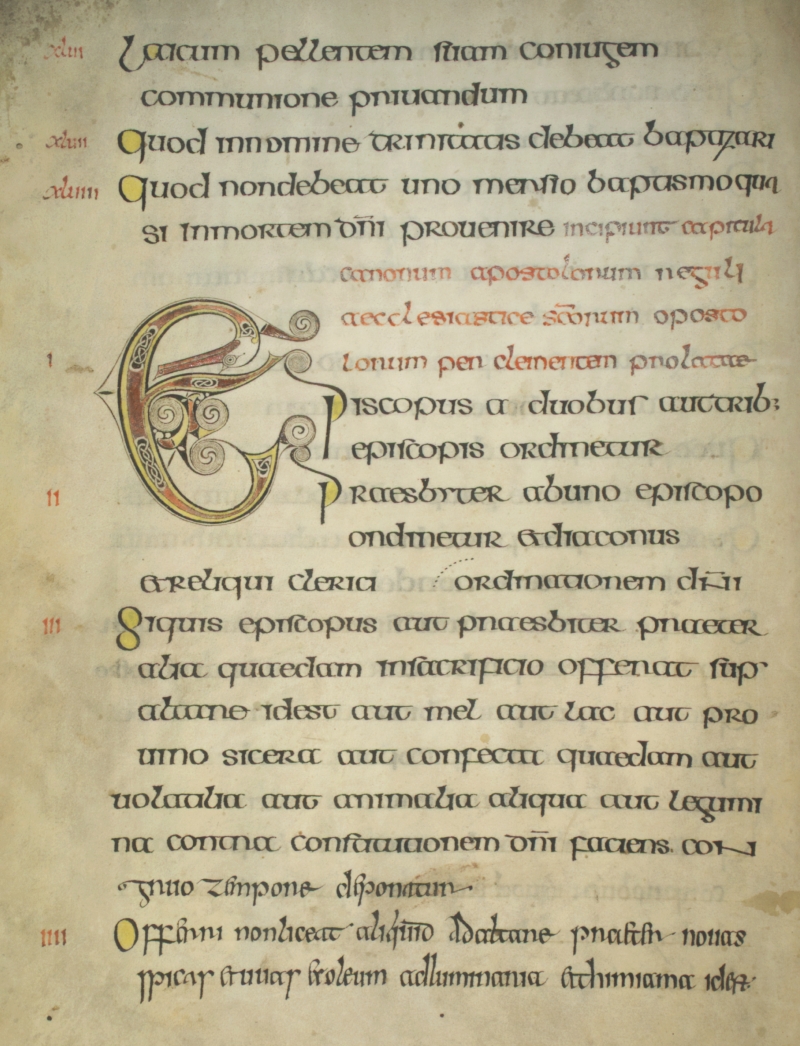 xlii Laicum pellentem suam coniugem
communione priuandum
xliii Quod innomine trinitatis debeat baptizari
xliiii Quod nondebeat uno merso baptismo qua
si inmortem dn̄i prouenire incipiunt capitula
canonum apostolorum reguli
aecclesiastice sc̄orum aposto
lorum per clementem prolatae
i EPiscopus a duobus aut trib;
episcopis ordinetur
ii Praesbyter abuno episcopo
ordinetur & diaconus
& reliqui clerici ordinationem
iii Siquis episcopus aut praesbiter praeter
alia quaedam insacrificio offerat sup̄
altare idest aut mel aut lac aut pro
uino sicera aut confecta quaedam aut
uolatilia aut animalia aliqua aut legimi
na contra constitutionem dn̄i faciens con
gruo tempore deponatur
iiii Offerri nonliceat aliquid adaltare nouas
spicas & uuas & oleum adluminaria & thimiama idest